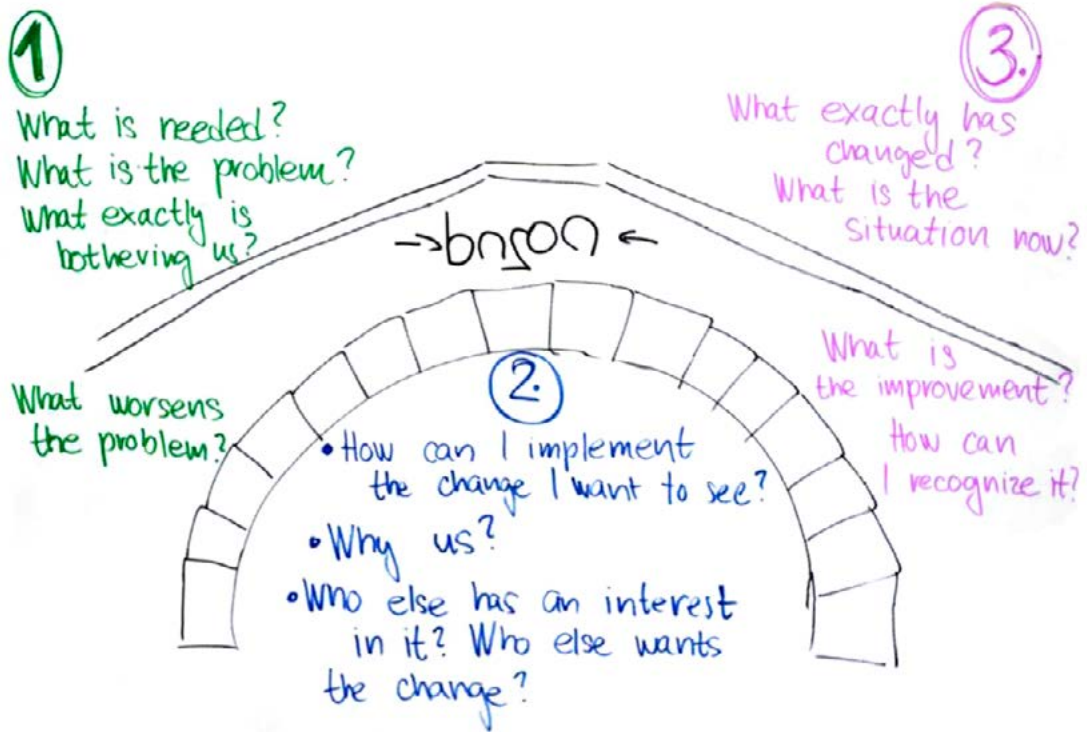 1
What is needed?
What is the problem?
What exactly is
bothering us?
What worsens
the problem?
2.
• How can I implement
the change I want to see?
• Why us?
• Who else has an interest
in it? Who else wants
the change?
3.
What exactly has
changed?
What is the
situation now?
What is
the improvement?
How can
I recognize it?